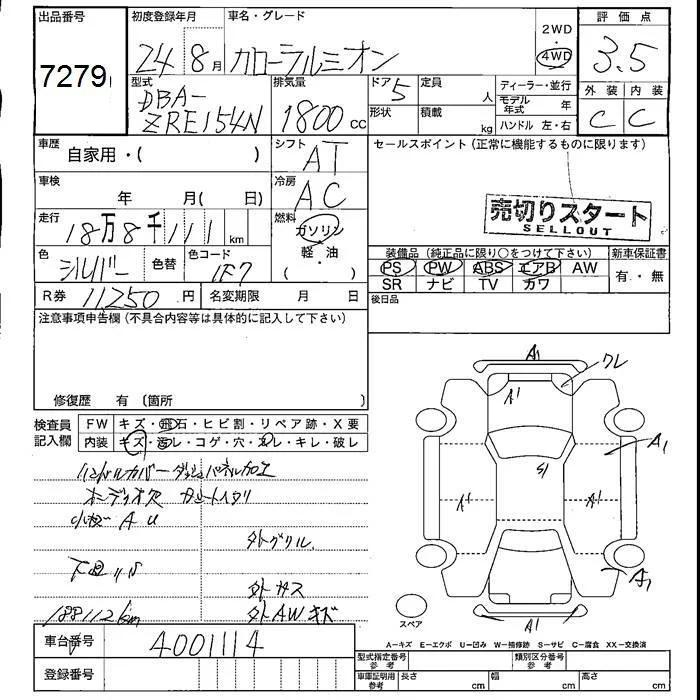 出品番号
7279
初度登録年月
24 8月
車名・グレード
カローラルミオン
2WD
・
4WD
評価点
3.5
外装 内装
C C
型式
DBA-
ZRE154N
排気量
1800 cc
ドア 5
形状
定員
人
積載
kg
ディーラー・並行
モデル年式 年
ハンドル 左・右
車歴
自家用・( )
シフト
AT
セールスポイント(正常に機能するものに限ります)
売切りスタート
SELLOUT
車検
年 月( 日)
冷房
AC
走行
18万8千111km
燃料
ガソリン
軽・油
・( )
色
シルバー
色替
色コード
1F7
R券 11250円
名変期限 月 日
装備品(純正品に限り○をつけて下さい)
PS PW ABS エアB AW
SR ナビ TV カワ
新車保証書
有・無
後日品
注意事項申告欄(不具合内容等は具体的に記入して下さい)
修復歴 有(箇所
検査員記入欄
FW キズ・飛石・ヒビ割・リペア跡・X要
内装 キズ・汚レ・コゲ・穴・スレ・キレ・破レ
ハンドルカバー ダッシュパネル加工
オーディオ欠
小キズ A U
外グリル
外ガス
188112km
外AWキズ
A1
ワレ
A1
A1
A1
A1
A1
A1
スペア
A-キズ E-エクボ U-凹み W-補修跡 S-サビ C-腐食 XX-交換済
車台番号
4001114
登録番号
型式指定番号 参考
類別区分番号 参考
車庫証明用 参考
長さ cm
幅 cm
高さ cm